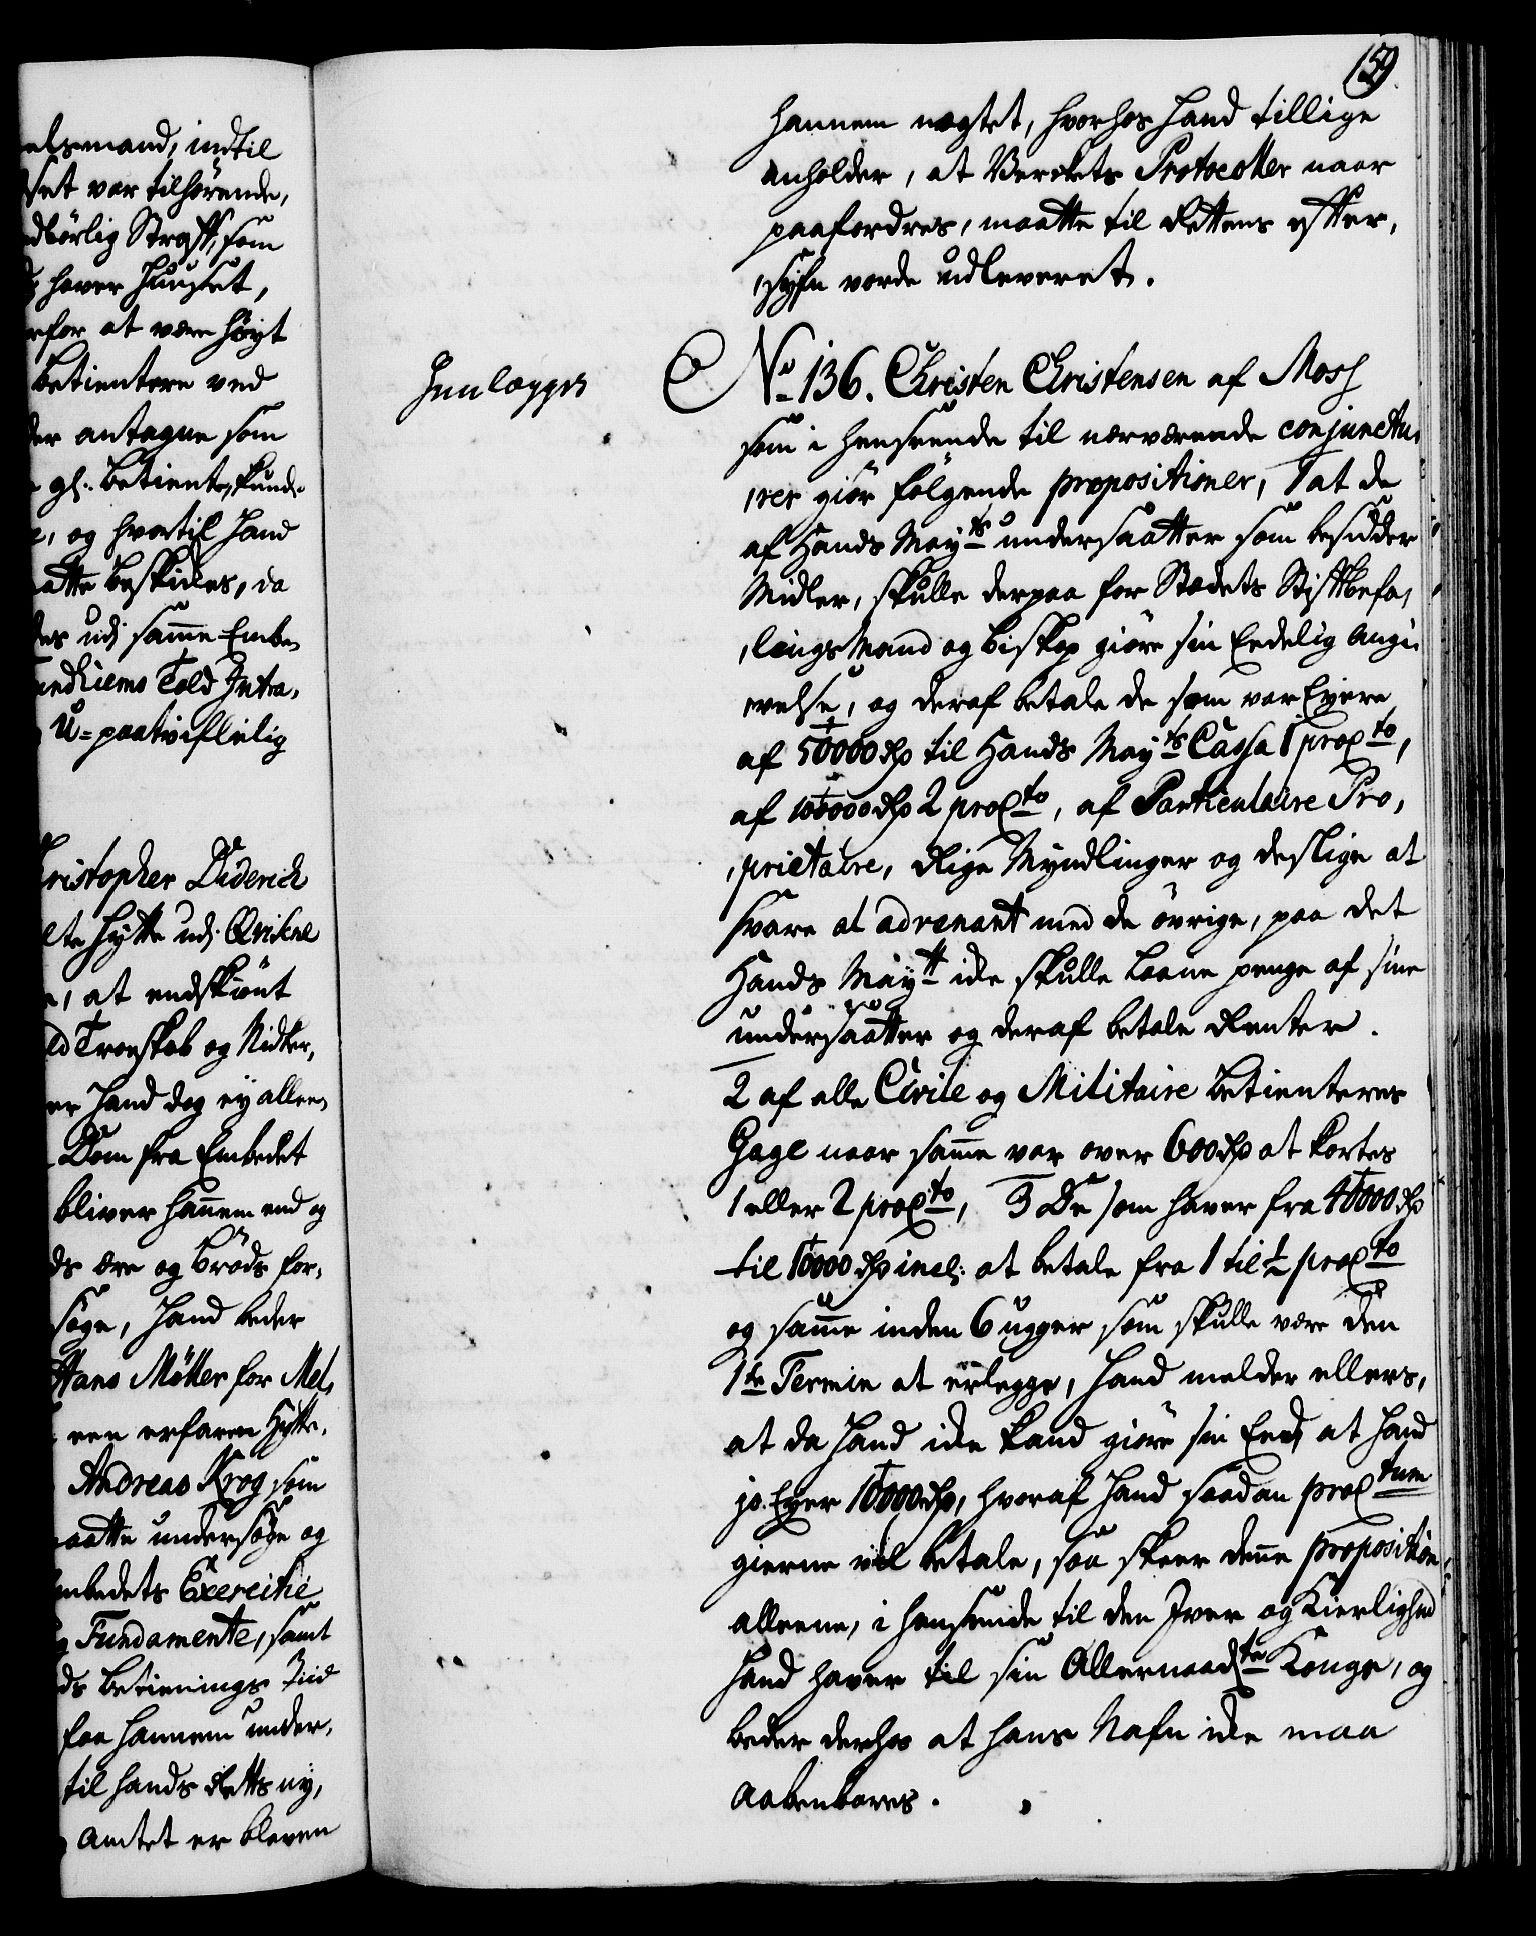 elsmand, indtil
set var tilhørende,
dbörlig Straff, som
haver Huuset,
rfor at være høyt
betientere ved
der antagne som
gl. betienter, kund-
e, og hvortil hand
atte beskickes, da
des udj samme Embe,
undhiems Told Intra,
U=paatvifflelig
hristopher Diderich
lte hytte udj Qvikne
e, at endskiönt
ld Troeskab og Nidker,
er hand dog ey alleene
Dom fra Embedet
bliver hannem end og
ds ære og bröds for,
söge, hand beder
Hans Möller for Mel,
een erfaren Hytte,
Andreas Krog som
aatte undersöge og
mbedets Exercitie
g Fundamente, samt
ds betienings Tiid
faa hannem under,
til hands Rettes ny,
Amtet er bleven
159.
hannem nægtet, hvorhos hand tillige
anholder, at Verckets Protocoller naar
paafordres, maatte til Rettens efter,
,syfn vorde udleveret.
Henlægges
No 136. Christen Christensen af Moss
som i henseende til nærværende conjunctu,
,rer giör fölgende propositioner, 1 at de
af Hands Mayts undersaatter som besidder
Midler, skulle derpaa for Stædets Stiftbefa,
,lings Mand og biskop giöre sin Eedelig Angi,
,velse, og deraf betale de som var Eyere
af 50000 Rd til Hands Mayts Cassa 1 proCto,
af 100000 Rd 2 proCto, af Particulaire Pro,
,prietaire, Rige Myndlinger og deslige at
svare al advenant med de övrige, paa det
Hands Maytt icke skulle laane penge af sine
undersaatter og deraf betale Renter.
2 af alle Civile og Militaire betienteres
Gage naar samme var over 600 Rd at kortes
1 eller 2 proCto, 3 De som haver fra 40000 Rd
til 10000 Rd incl: at betale fra 1 til ½ proCto
og samme inden 6 ugger som skulle være den
1te Termin at erlegge, hand melder ellers,
at da hand icke kand giöre sin Eed at hand
jo Eyer 10000 Rd, hvoraf hand saadan proCtum
gierne vil betale, saa skeer denne proposition
alleene, i henseende til den Iver og Kierlighed
hand haver til sin Allernaadste Konge, og
beder derhos at hans Nafn icke maa
aabenbares.